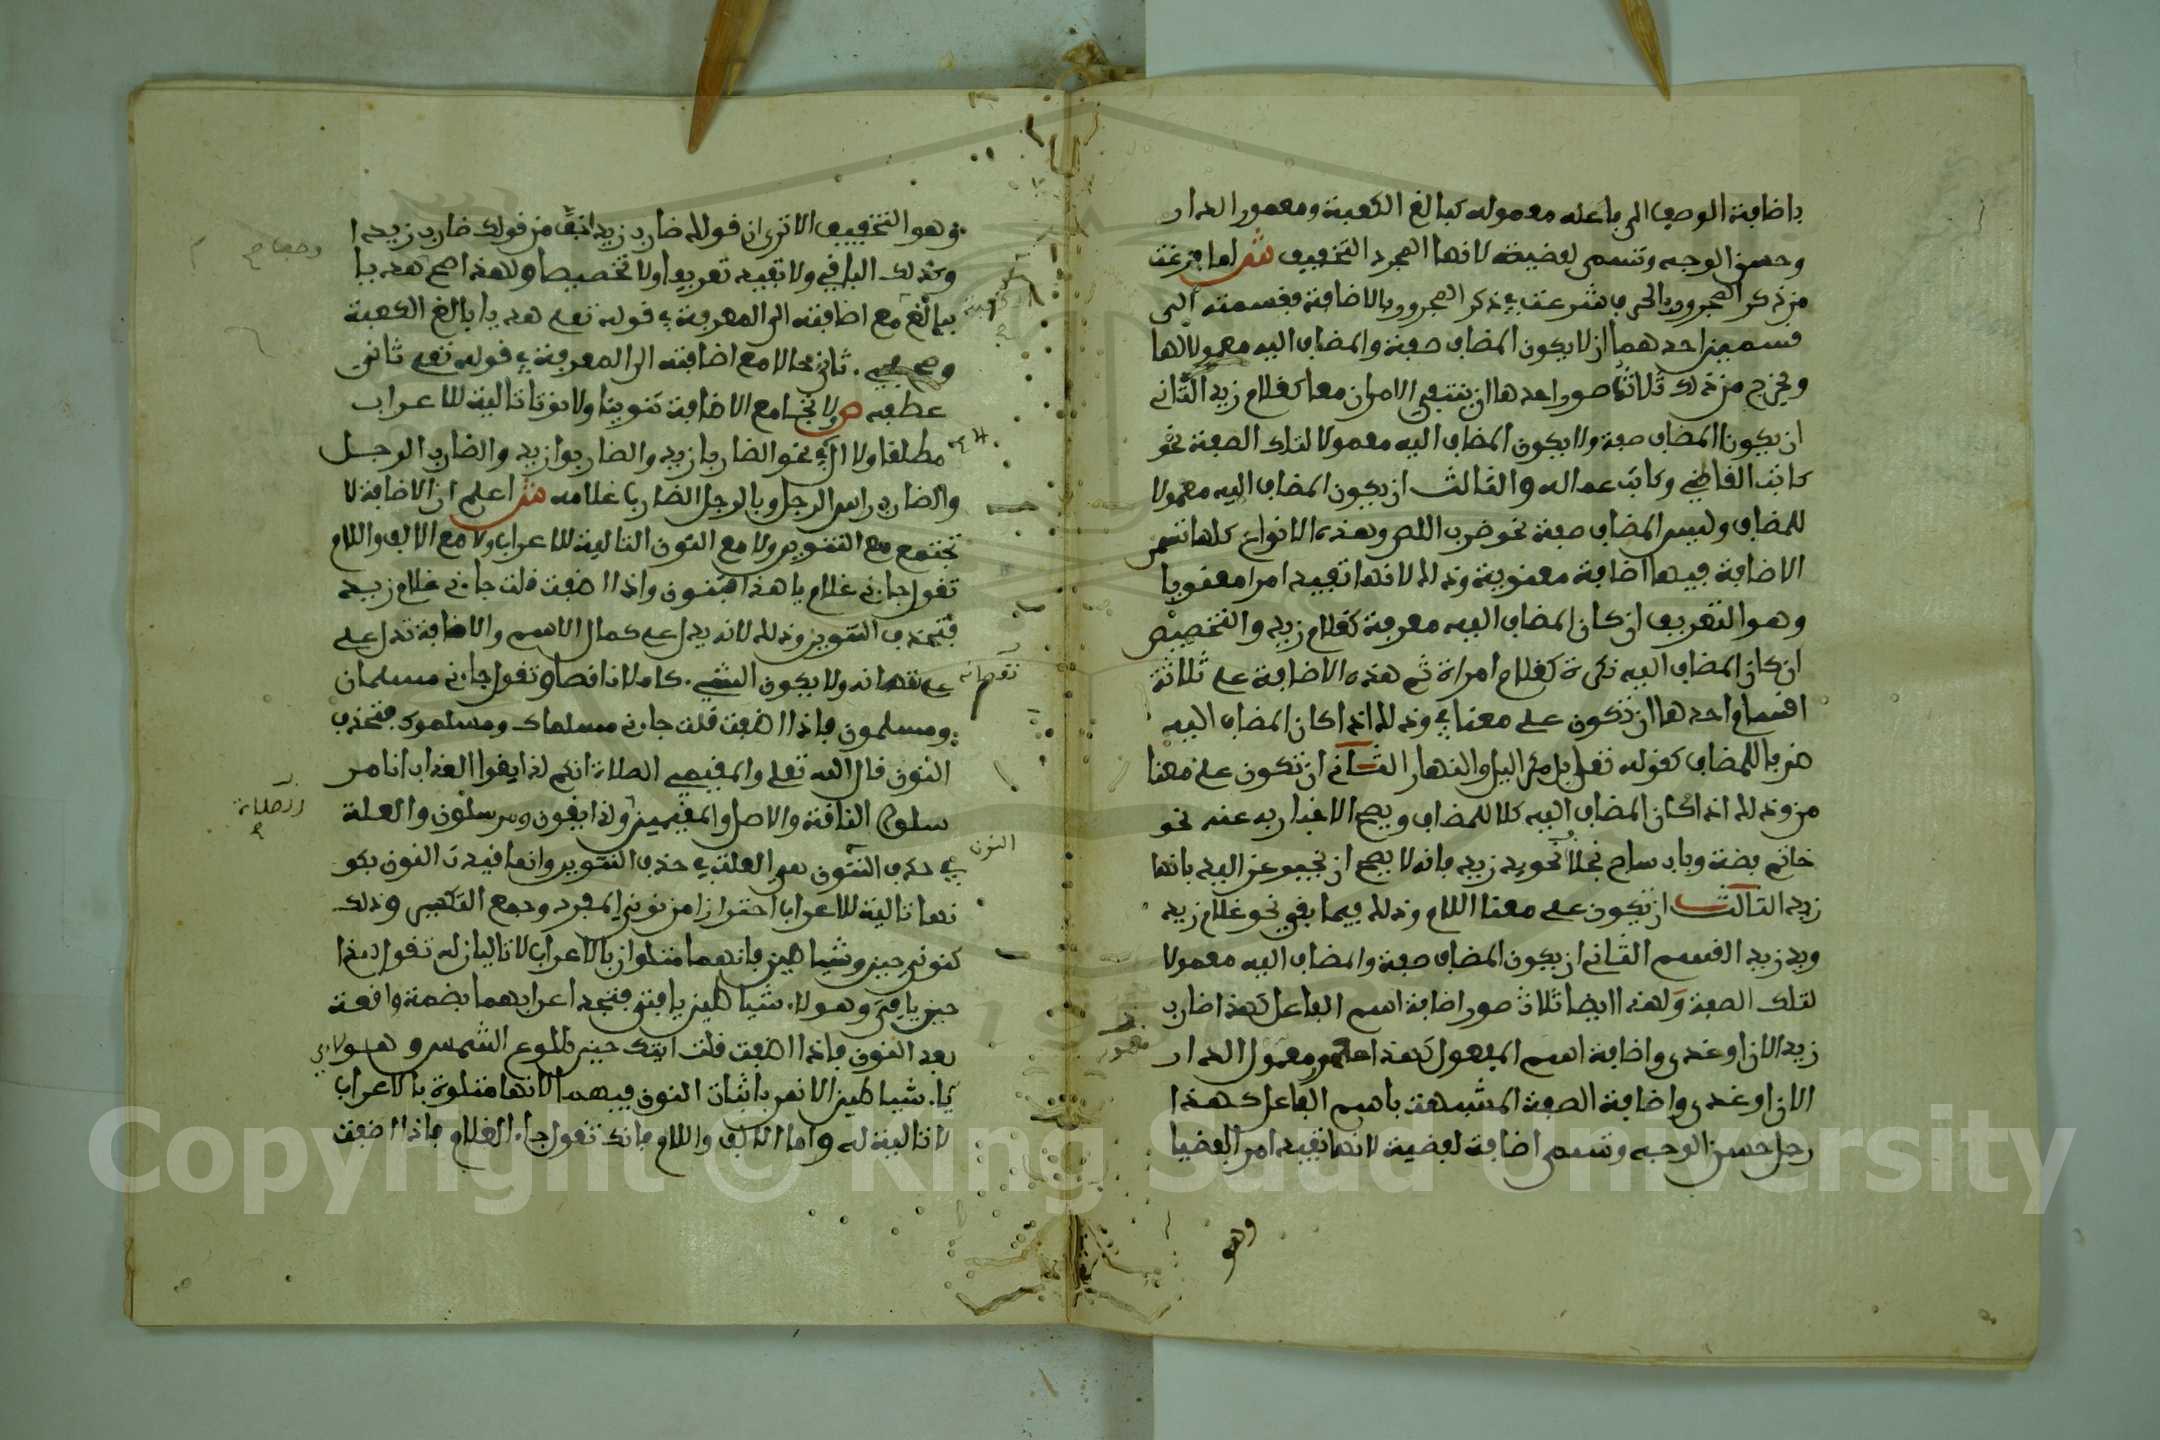 باضافة الوصف الى باعله معموله كبالغ الكعبة ومعمور الدار
وحسن الوجه وتسمى لفضية لانها المجرد التخفيف ش لما فرغت
من ذكر المجرور بالحرف شرعت في ذكر المجرور بالاضافة فقسمته الى
قسمين احدهما ان لا يكون المضاف صفة والمضاف اليه معمولا لها
ويخرج من ذلك ثلاث صور احدها ان ينتفي الامران معا كغلام زيد الثاني
ان يكون المضاف صفة ولا يكون المضاف اليه معمولا لتلك الصفة نحو
كاتب القاضي وكاتب عياله والثالث ان يكون المضاف اليه معمولا
للمضاف وليس المضاف صفة نحو ضرب اللص وهذه الانواع كلها تسمى
الاضافة فيها اضافة معنوية وذلك لانها تفيد امرا معنويا
وهو التعريف ان كان المضاف اليه معرفة كغلام زيد والتخصيص
ان كان المضاف اليه نكرة كغلام امراة ثم هذه الاضافة على ثلاثة
اقسام احدها ان تكون على معنا في وذلك اذا كان المضاف اليه
ضربا للمضاف كقوله تعلى بل مكر اليل والنهار الثاني ان تكون على معنا
من وذلك اذا كان المضاف اليه كلا للمضاف ويصح الاخبار به عنه نحو
خاتم فضة وباب ساج بخلاف نحو يد زيد فانه لا يصح ان يخبر عن اليد بانها
زيد الثالث ان يكون على معنا اللام وذلك فيما بقي نحو غلام زيد
ويد زيد القسم الثاني ان يكون المضاف صفة والمضاف اليه معمولا
لتلك الصفة ولهذا ايضا ثلاث صور اضافة اسم الفاعل كهذا ضارب
زيد الان او غدى واضافة اسم المفعول كهذا معمور الدار
الان او غدى واضافة الصفة المشبهة باسم الفاعل كهذا
رجل حسن الوجه وتسمى اضافة لفضية لانها تفيد امرا لفضيا
معمور
وهو
وهو التخفيف الا ترى ان قولك ضارب زيد اخف من قولك ضارب زيدا
وكذلك الباقي ولا تفيد تعريفا ولا تخصيصا ولهذا صح هديا
ببالغ مع اضافته الى المعرفة في قوله تعلى هديا بالغ الكعبة
وصح مجيء ثاني حالا مع اضافته الى المعرفة في قوله تعلى ثاني
عطفه ص ولا تجامع الاضافة تنوينا ولا نونا تالية للاعراب
مطلقا ولا ال الا في نحو الضاربا زيد والضاربوا زيد والضارب الرجل
والضارب راس الرجل وبالرجل الضارب غلامه ش اعلم ان الاضافة لا
تجتمع مع التنوين ولا مع النون التالية للاعراب ولا مع الالف واللام
تقول جاءني غلام يا هذا فتنون واذا اضفت قلت جاءني غلام زيد
فتحذف التنوين وذلك لانه يدل على كمال الاسم والاضافة تدل على
على نقصانه ولا يكون الشيء كاملا ناقصا وتقول جاءني مسلمان
ومسلمون فاذا اضفت قلت جاءني مسلماك ومسلموك فتحذف
النون قال الله تعلى والمقيمي الصلاة انكم لذايقوا العذاب انا مر
سلوا الناقة والاصل والمقيمين ولذايقون ومرسلون والعلة
في حذف النون هي العلة في حذف التنوين وانما قيدت النون بكو
نها تالية للاعراب احترازا من نوني المفرد وجمع التكسير وذلك
كنوني حين وشياطين فانهما متلوان بالاعراب لا تاليان له تقول هذا
حين يا فتى وهولاء شياطين يا فتى فتجد اعرابهما بضمة واقعة
بعد النون فاذا اضفت قلت اتيتك حين طلوع الشمس وهولاء
شياطين الانس باثبات النون فيهما لانها متلوة بالاعراب
لا تالية له واما الالف واللام فانك تقول جاء الغلام فاذا اضفت
نقصانه
النون
الصلاة
Copyright © King Saud University